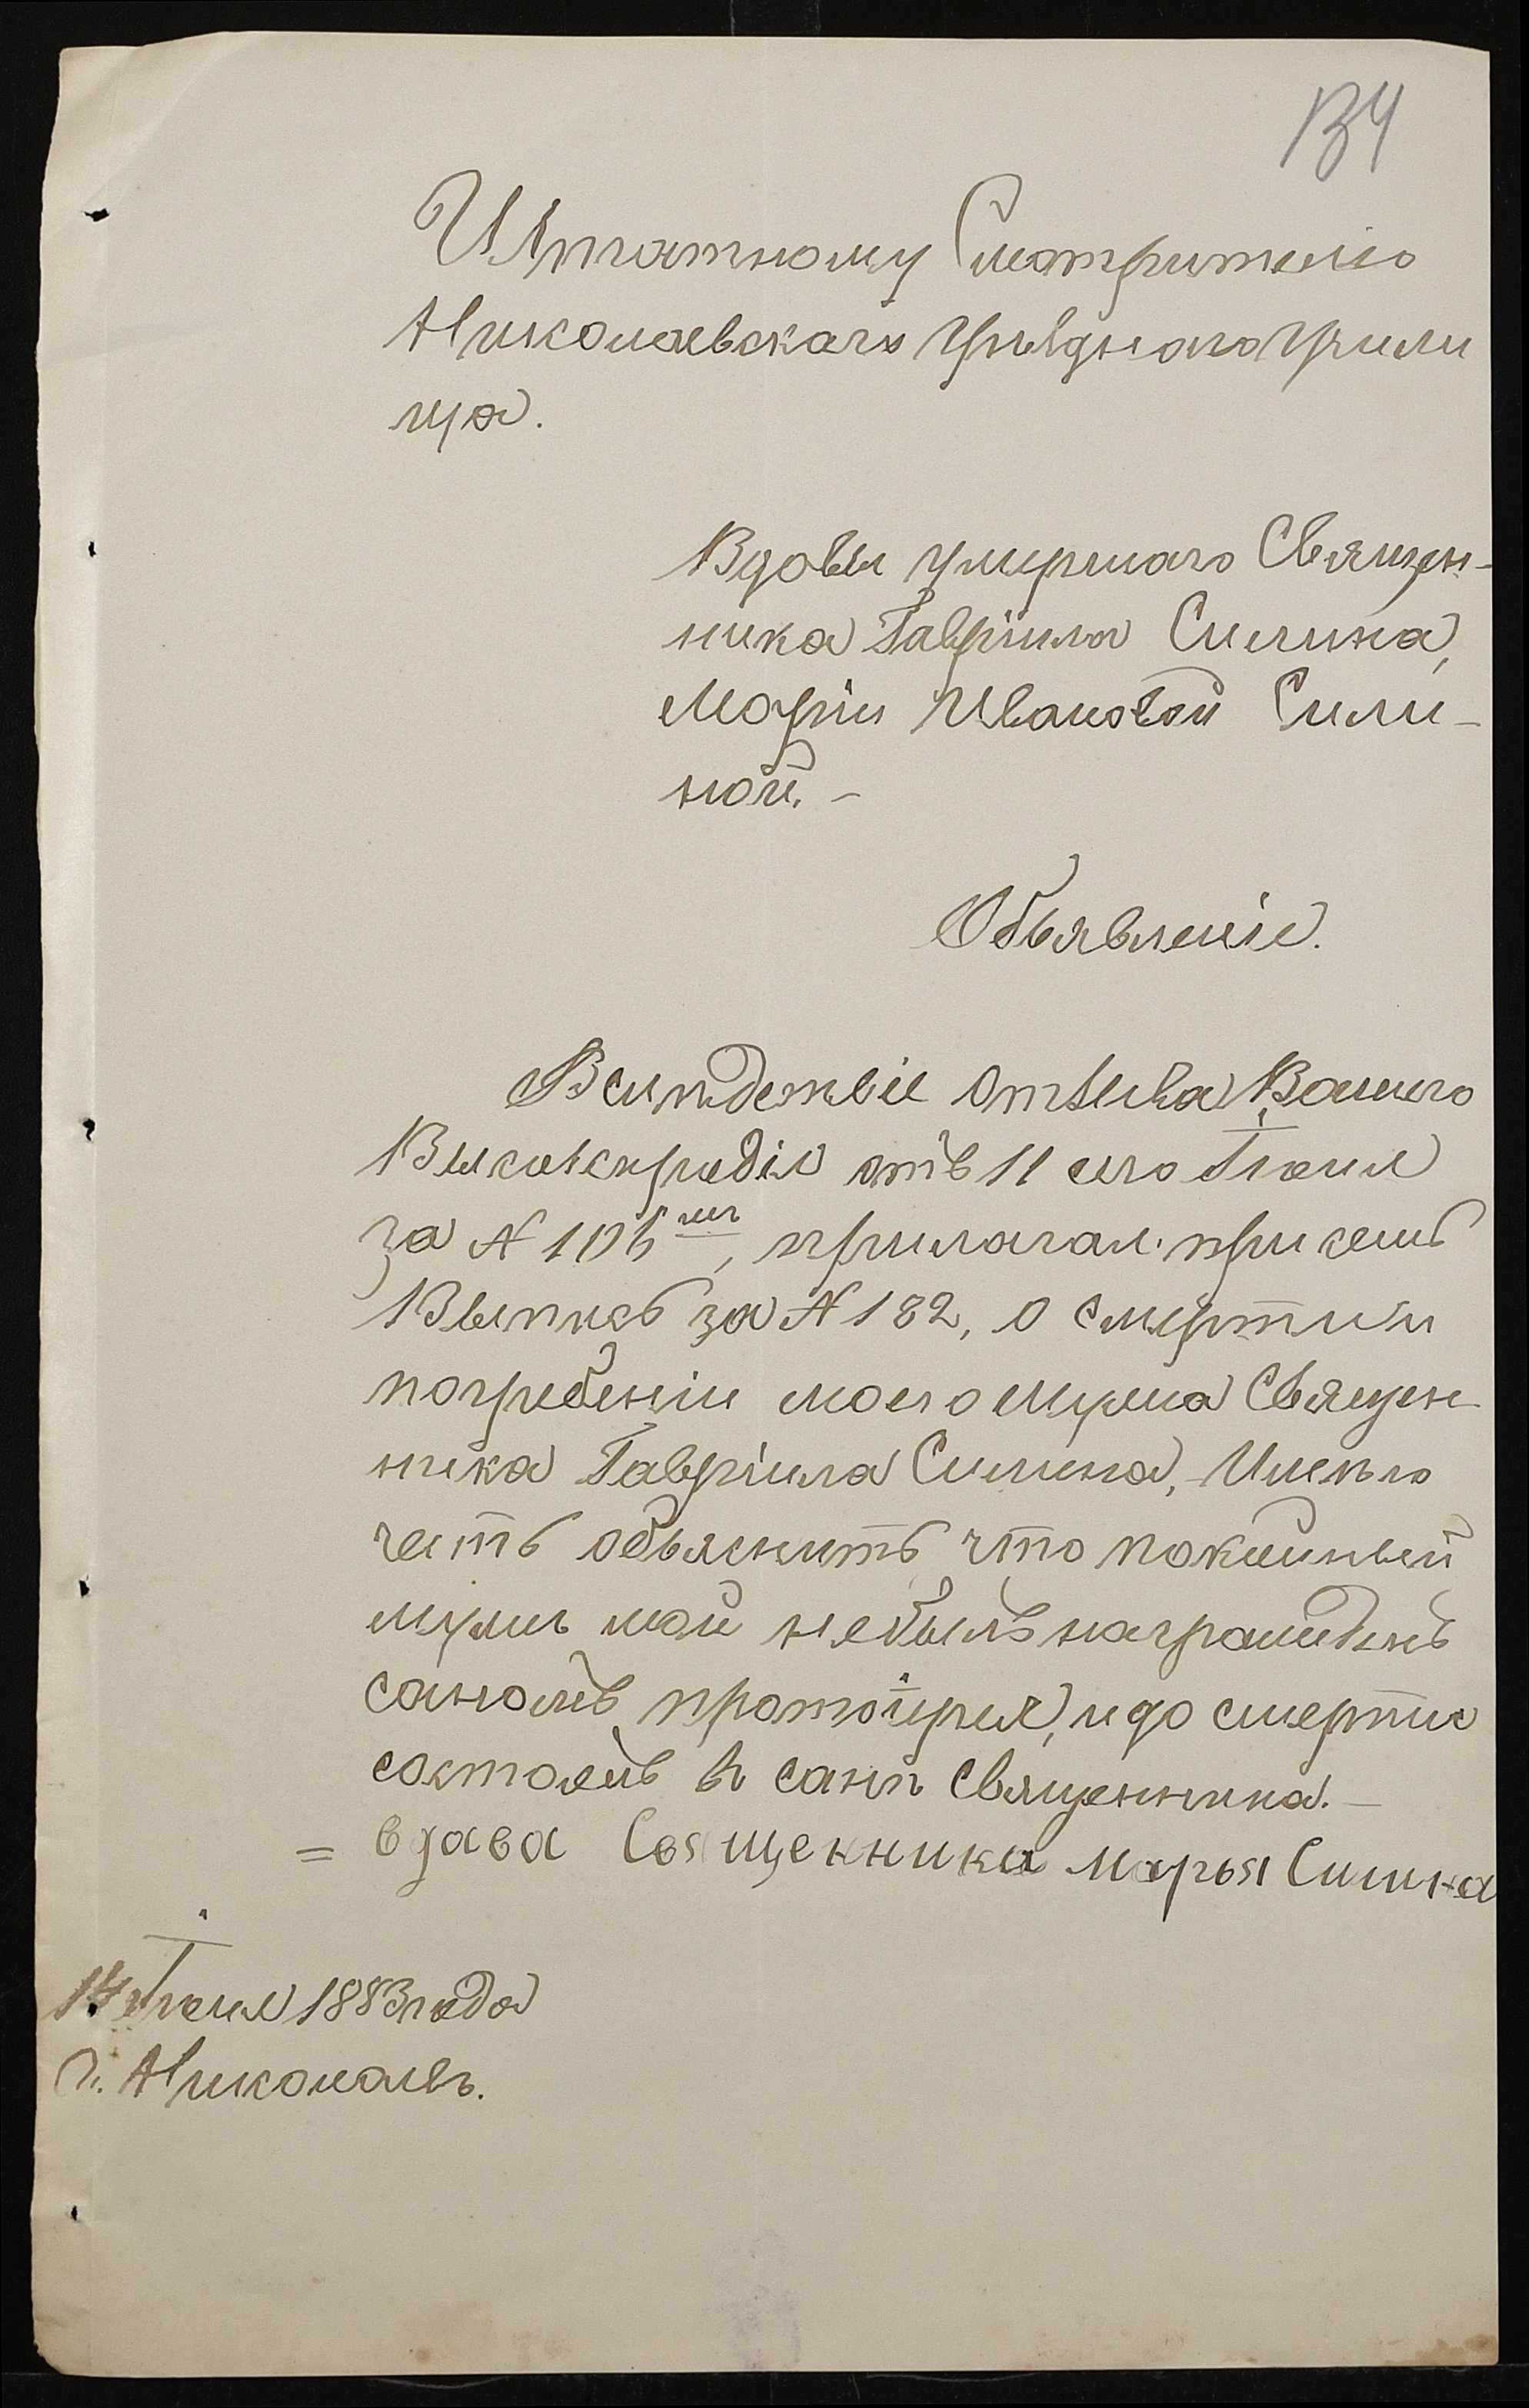 134
Штатному Смотрителю
Николаевскаго Уѣзднаго Учили
ща.
Вдовы умершаго Священ-
ника Гавріила Силина,
Маріи Ивановой Сили-
ной. –
Объявленіе.
Вслѣдствіе отзыва Вашего
Высокоблародія отъ 11 сего Іюня
за № 106, прилагая при семъ
Выпись за № 182, о смерти и
погребеніи моего мужа Священ-
ника Гавріила Силина, Имѣю
честь объяснить что покойный
мужъ мой небылъ награжденъ
саномъ протоіерея, и до смерти
состоялъ въ санѣ Священника. –
= вдава Священника Марья Силина
14 Іюня 1883 года
г. Николаевъ.